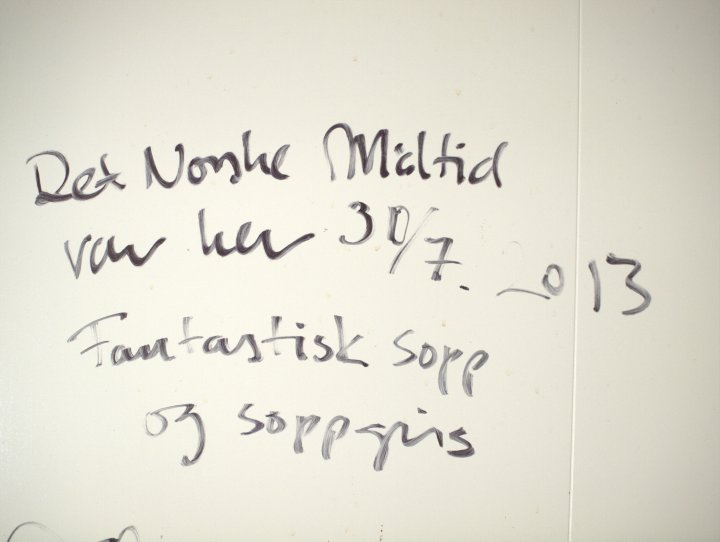 Det Norske Måltid
var her 30/7. 2013
Fantastisk sopp
og soppgris